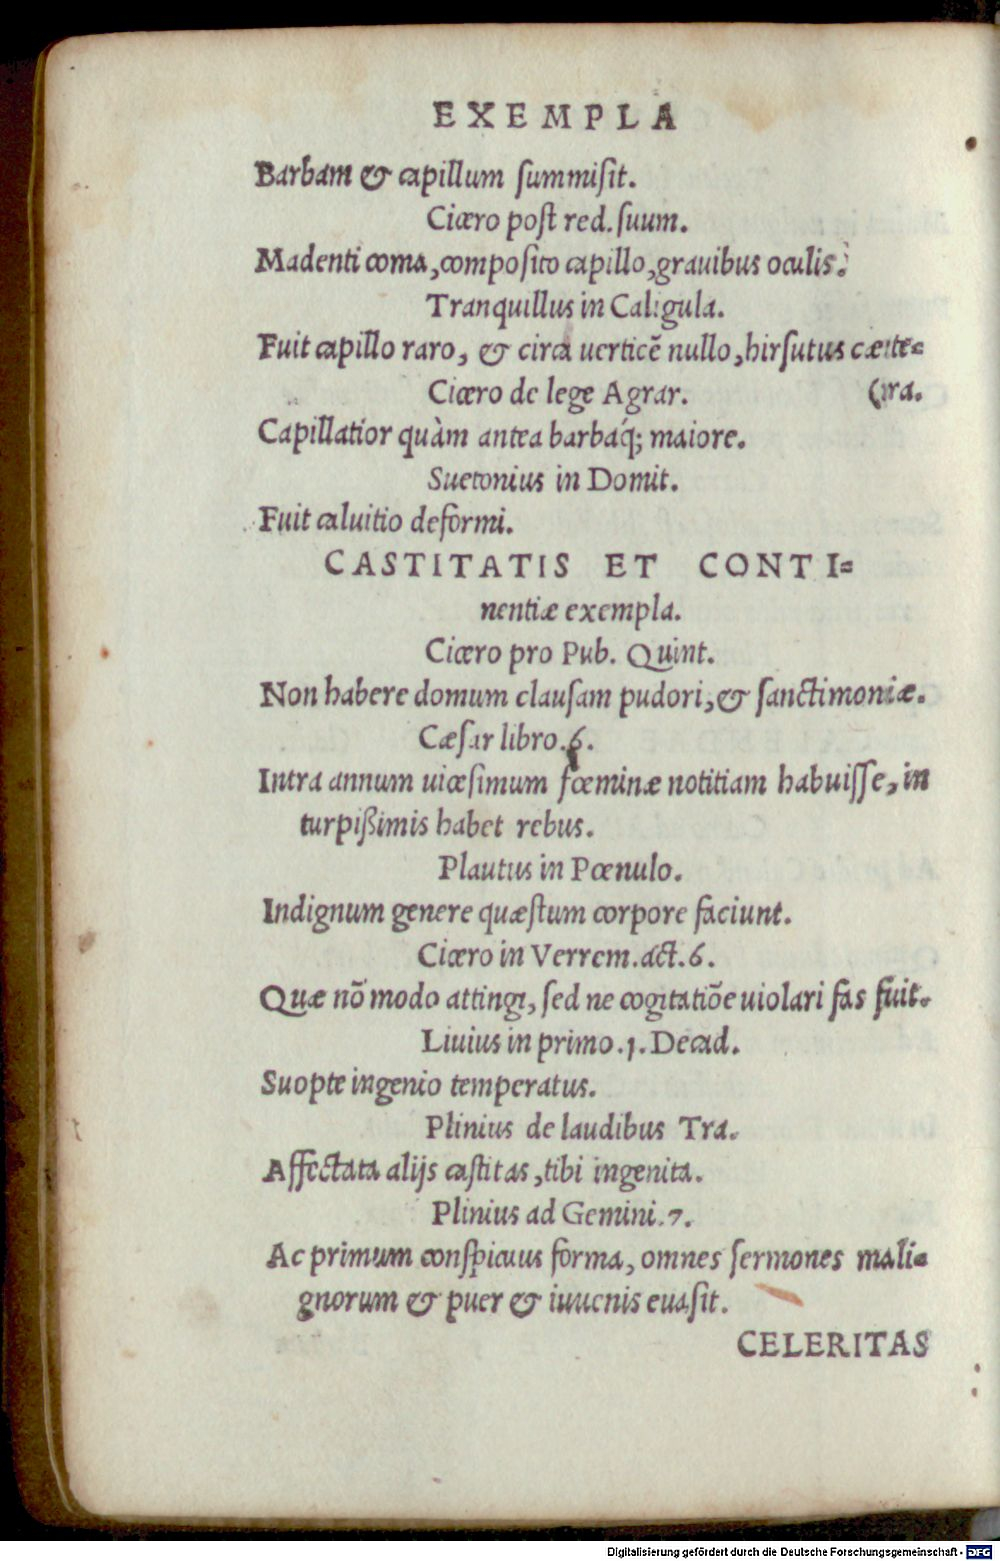 EXEMPLA
Barbam & capillum summisit.
Cicero post red. suum.
Madenti coma, composito capillo, grauibus oculis.
Tranquillus in Caligula.
Fuit capillo raro, & circa uerticē nullo, hirsutus cæte=
Cicero de lege Agrar. (ra.
Capillatior quàm antea barbáq; maiore.
Suetonius in Domit.
Fuit caluitio deformi.
CASTITATIS ET CONTI=
nentiæ exempla.
Cicero pro Pub. Quint.
Non habere domum clausam pudori, & sanctimoniæ.
Cæsar libro .6.
Intra annum uicesimum fœminæ notitiam habuisse, in
turpißimis habet rebus.
Plautus in Pœnulo.
Indignum genere quæstum corpore faciunt.
Cicero in Verrem. act. 6.
Quæ nō modo attingi, sed ne cogitatiōe uiolari fas fuit.
Liuius in primo .1. Decad.
Suopte ingenio temperatus.
Plinius de laudibus Tra.
Affectata alijs castitas, tibi ingenita.
Plinius ad Gemini. 7.
Ac primum conspicuus forma, omnes sermones mali=
gnorum & puer & iuuenis euasit.
CELERITAS
Digitalisierung gefördert durch die Deutsche Forschungsgemeinschaft - DFG